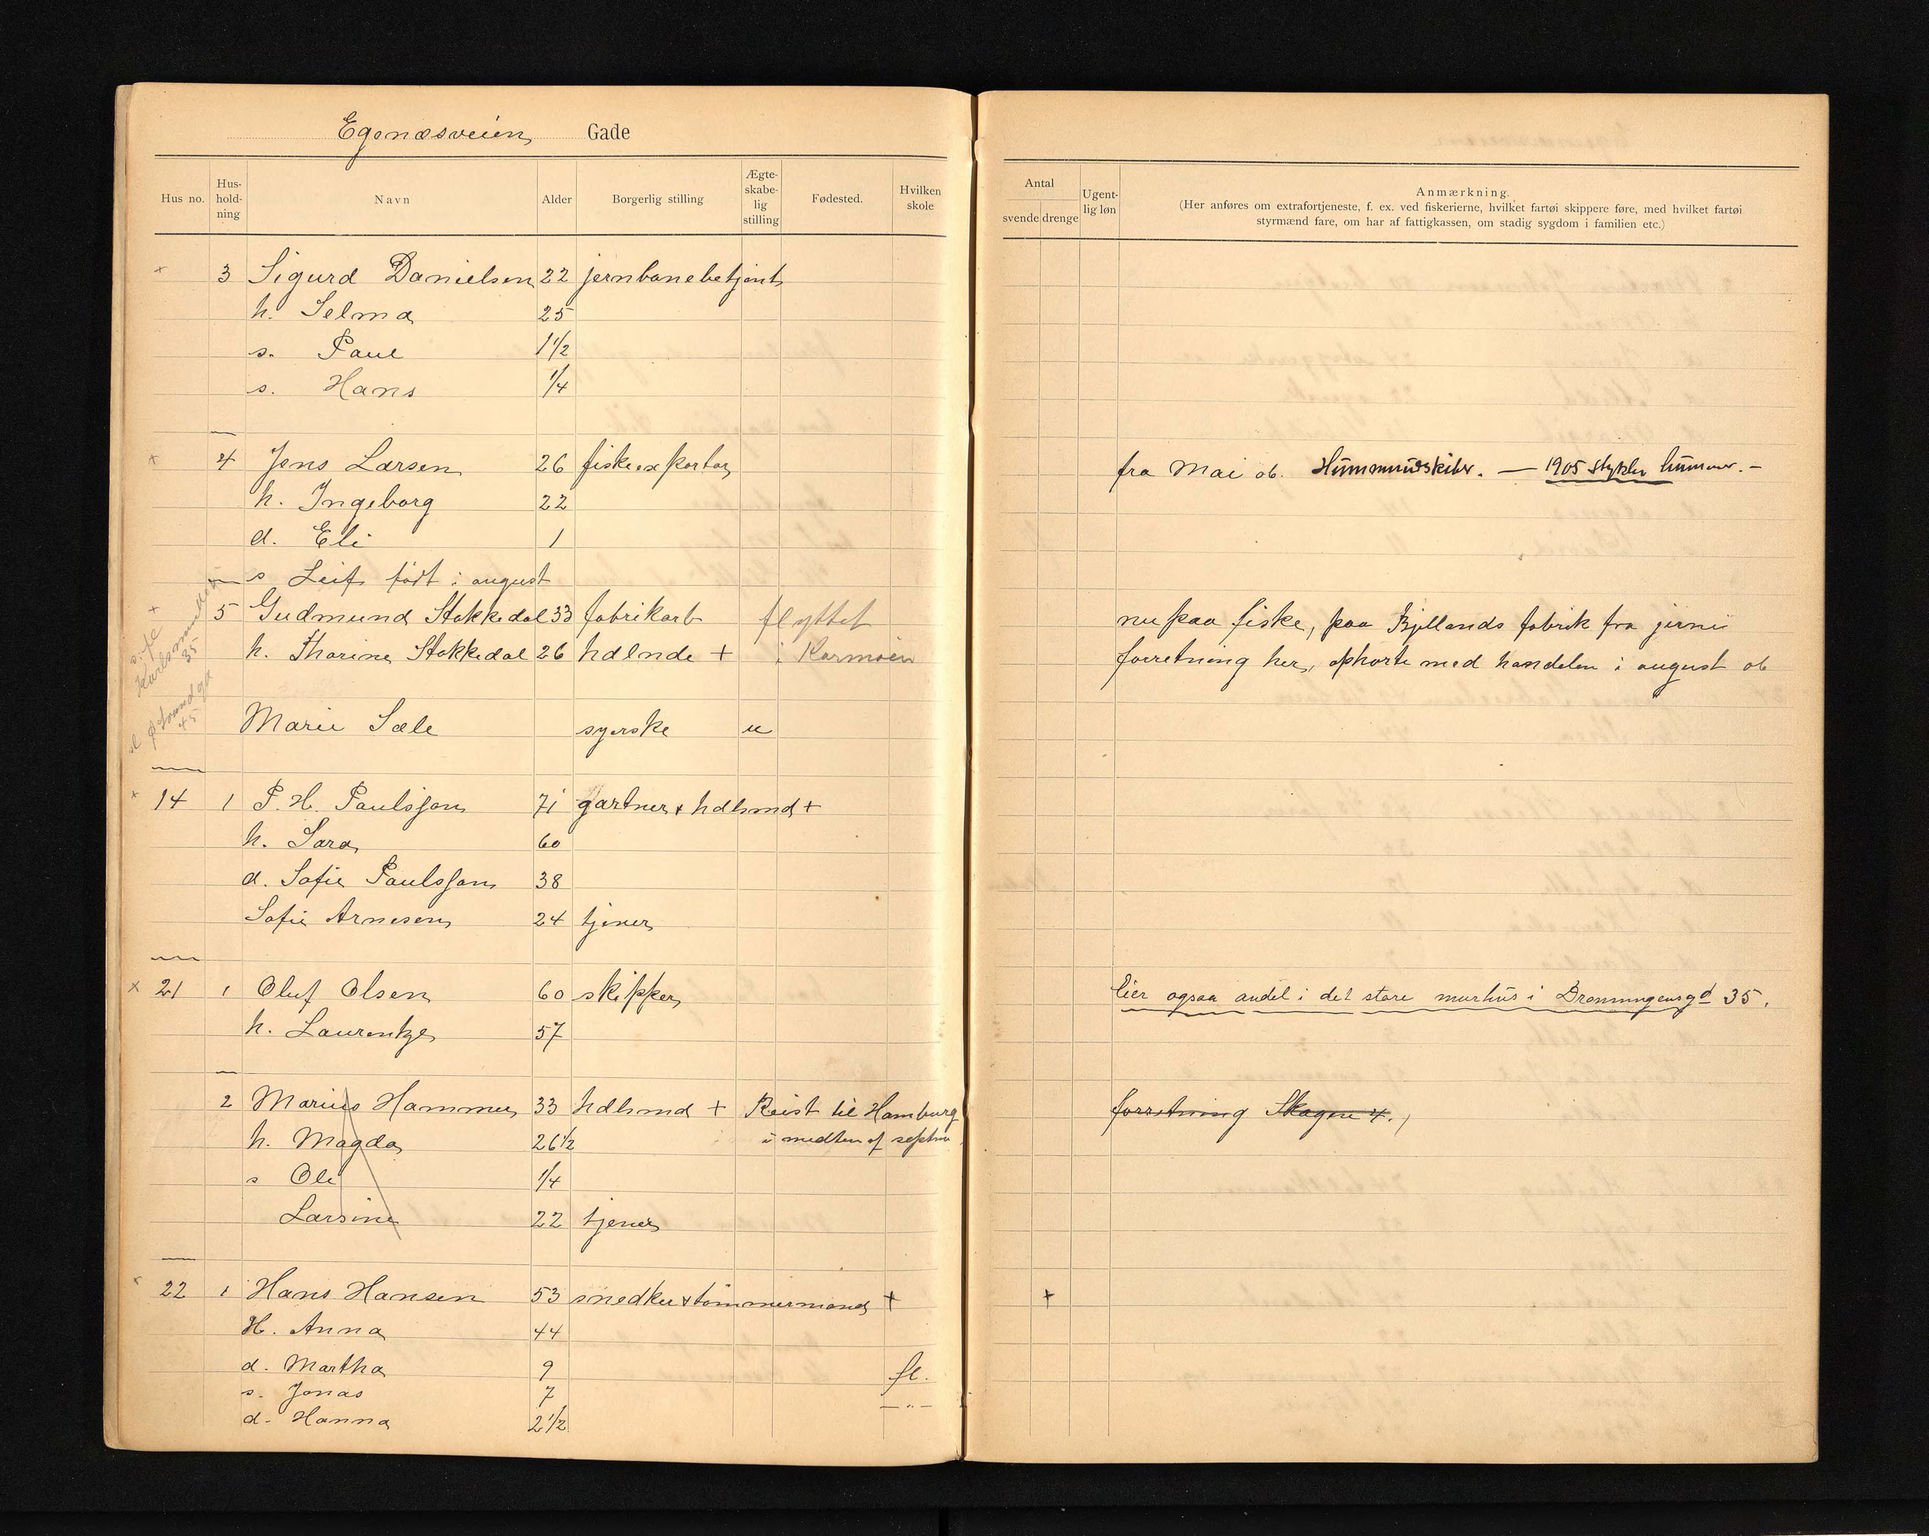 Egenæsveien Gade
Hus no. Hus-hold-ning Navn Alder Borgerlig stilling Ægte-skabe-lig stilling Fødested. Hvilken skole
Antal svende drenge Ugent-lig løn Anmærkning.
(Her anføres om extrafortjeneste, f. ex. ved fiskerierne, hvilket fartøi skippere føre, med hvilket fartøi
styrmænd fare, om har af fattigkassen, om stadig sygdom i familien etc.)
+ 3 Sigurd Danielsen 22 jernbanebetjent
h. Selma 25
s. Paul 1 1/2
s. Hans 1/4
+ 4 Jens Larsen 26 fiskeexportør fra Mai ob. — 1905 stykker hummer. –
h. Ingeborg 22
d. Eli 1
s Leif født i august
+ 5 Gudmund Stokkedal 33 fabrikarb flyttet nu paa fiske, paa Bjellands fabrik fra
h. Thorine Stokkedal 26 hdlnde + i Karmøen forretning her, ophørte med handelen i august ob
35
45
Marie Sæle syerske u
+ 14 1 P. H. Paulsson 71 gartner + hdlmd +
h. Sara 60
d. Sofie Paulsson 38
Sofie Arnesen 24 tjener
x 21 1 Oluf Olsen 60 skipper Eier ogsaa andel i det store murhus i Dronningensgd 35.
h. Laurentze 57
2 Marius Hammer 33 hdlmd + Reist til Hamburg forretning Skagen 4.
h. Magda 26 1/2 i midten af septbr
s Ole 1/4
Larsine 22 tjener
x 22 1 Hans Hansen 53 snedker & tømmermand + +
H. Anna 44
d. Martha 9 fl.
s. Jonas 7 — " —
d. Hanna 2 1/2